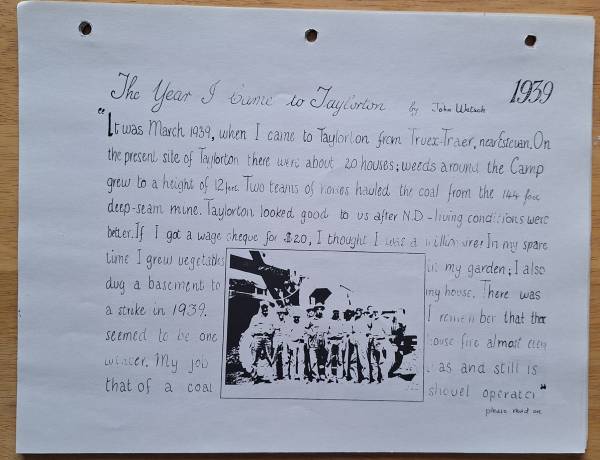 The Year I Came to Taylorton by John Watson 1939
"It was March 1939, when I came to Taylorton from Truax-Traer, near Estevan. On
the present site of Taylorton there were about 20 houses; weeds around the Camp
grew to a height of 12 feet. Two teams of horses hauled the coal from the 144 foot
deep-seam mine. Taylorton looked good to us after N.D - living conditions were
better. If I got a wage cheque for $20, I thought I was a millionaire! In my spare
time I grew vegetables in my garden; I also
dug a basement to my house. There was
a strike in 1939. I remember that there
seemed to be one house fire almost every
winter. My job was and still is
that of a coal shovel operator"
please read on